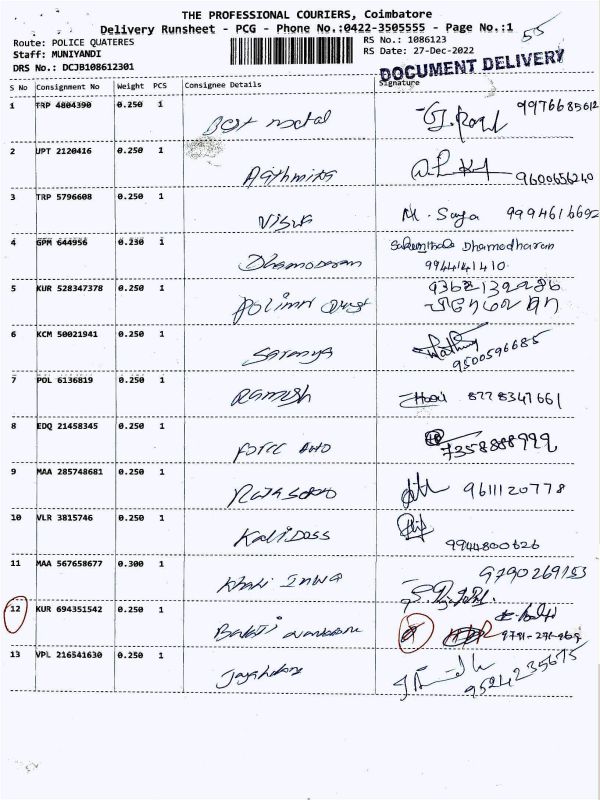 THE PROFESSIONAL COURIERS, Coimbatore
55
Delivery Runsheet - PCG - Phone No.:0422-3505555 - Page No.:1
Route: POLICE QUATERES RS No.: 1086123
Staff: MUNIYANDI RS Date: 27-Dec-2022
DRS No.: DCJB108612301
DOCUMENT DELIVERY
S No Consignment No Weight PCS Consignee Details Signature
1 TRP 4804390 0.250 1 Best metal 9976685612
2 UPT 2120416 0.250 1 9600656240
3 TRP 5796608 0.250 1 M. Surya 9994616692
4 GPM 644956 0.230 1 Dhamodaran Sakunthala Dhamodharan
9944141410
5 KUR 528347378 0.250 1 9362132286
6 KCM 50021941 0.250 1 Saranya 9500596685
7 POL 6136819 0.250 1 Ramesh 8778347661
8 EDQ 21458345 0.250 1 Force Auto 7358888999
9 MAA 285748681 0.250 1 9611120778
10 VLR 3815746 0.250 1 Kali Doss 9944800626
11 MAA 567658677 0.300 1 9790269153
12 KUR 694351542 0.250 1 Balaji
13 VPL 216541630 0.250 1 9524235675